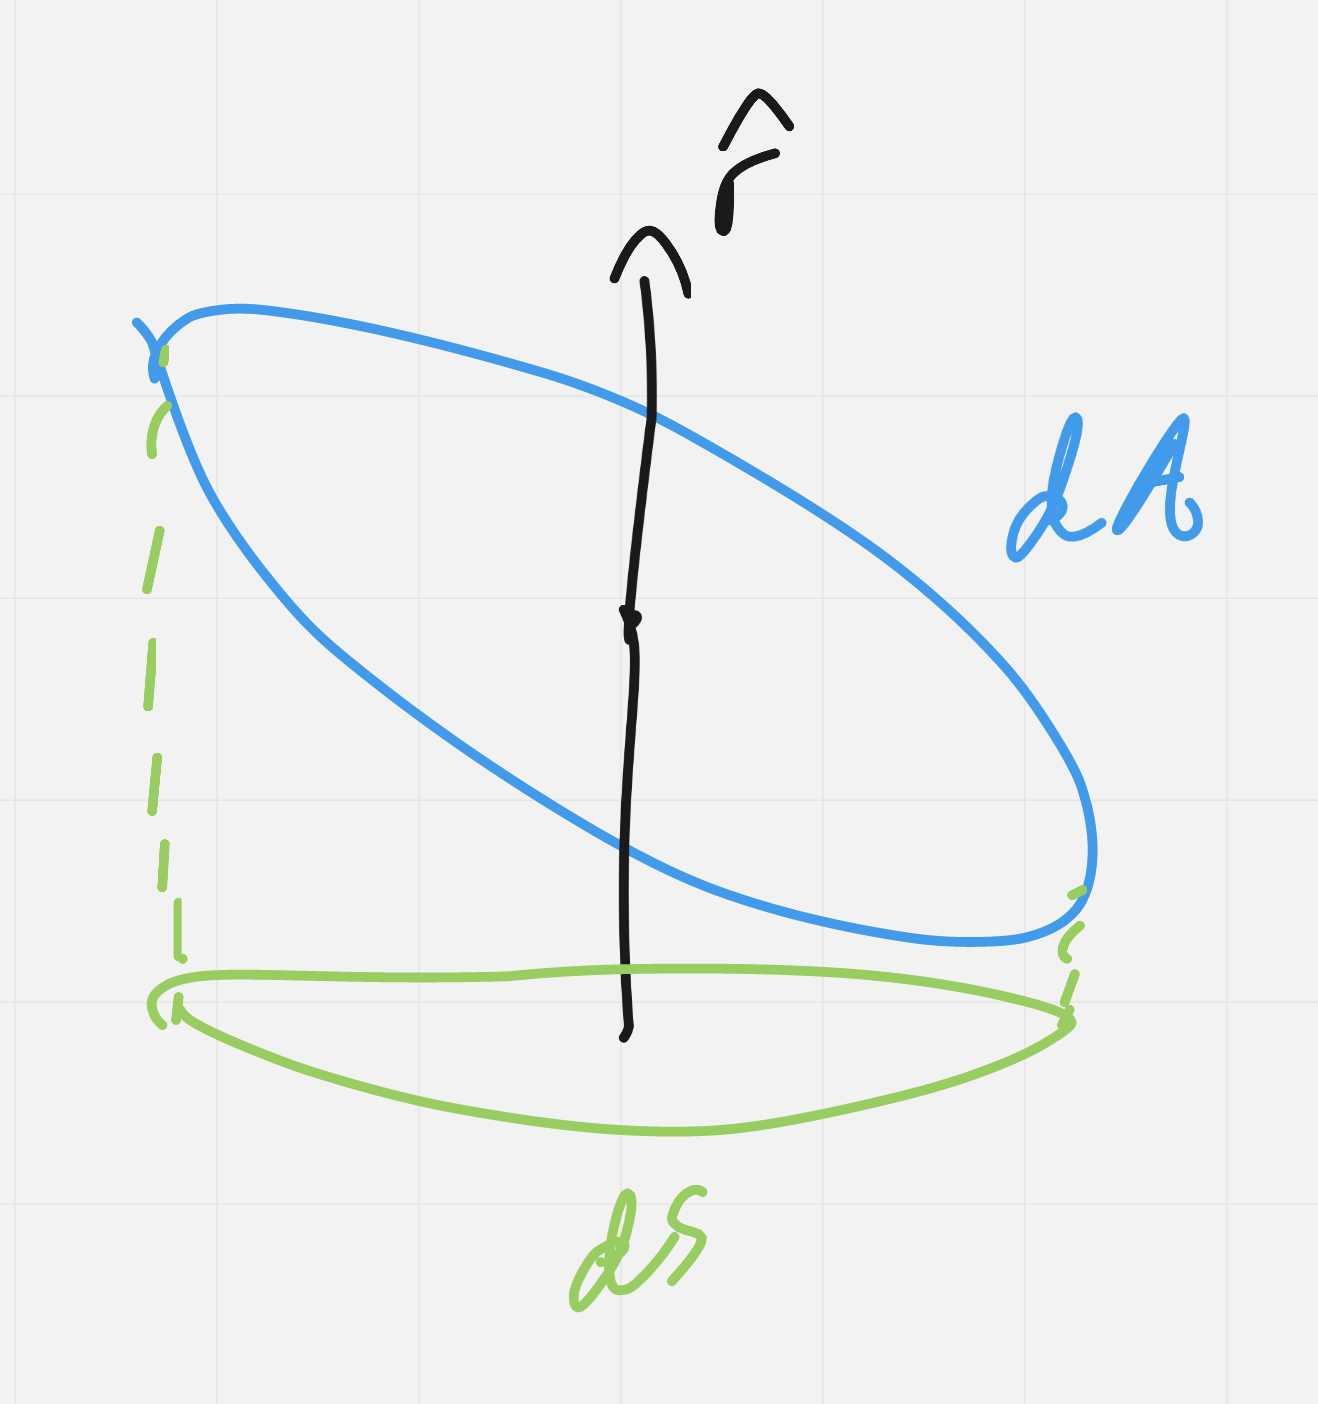 r̂
dA
ds